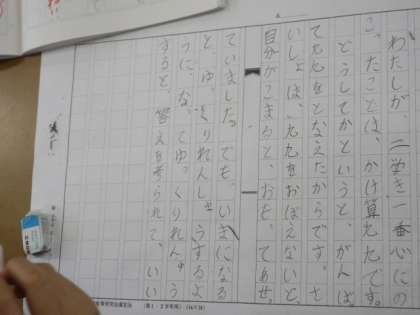 わたしが、二学き一番心にの
こったことは、かけ算九九です。
どうしてかというと、がんば
て九九をとなえたからです。さ
いしょは、九九をおぼえないと、
自分がこまると、おもってあせっ
ていました。でも、いまになる
と、ゆっくりれんしゅうするよ
うに、なってゆっくりれんしゅう
すると、答えを考られて、いい